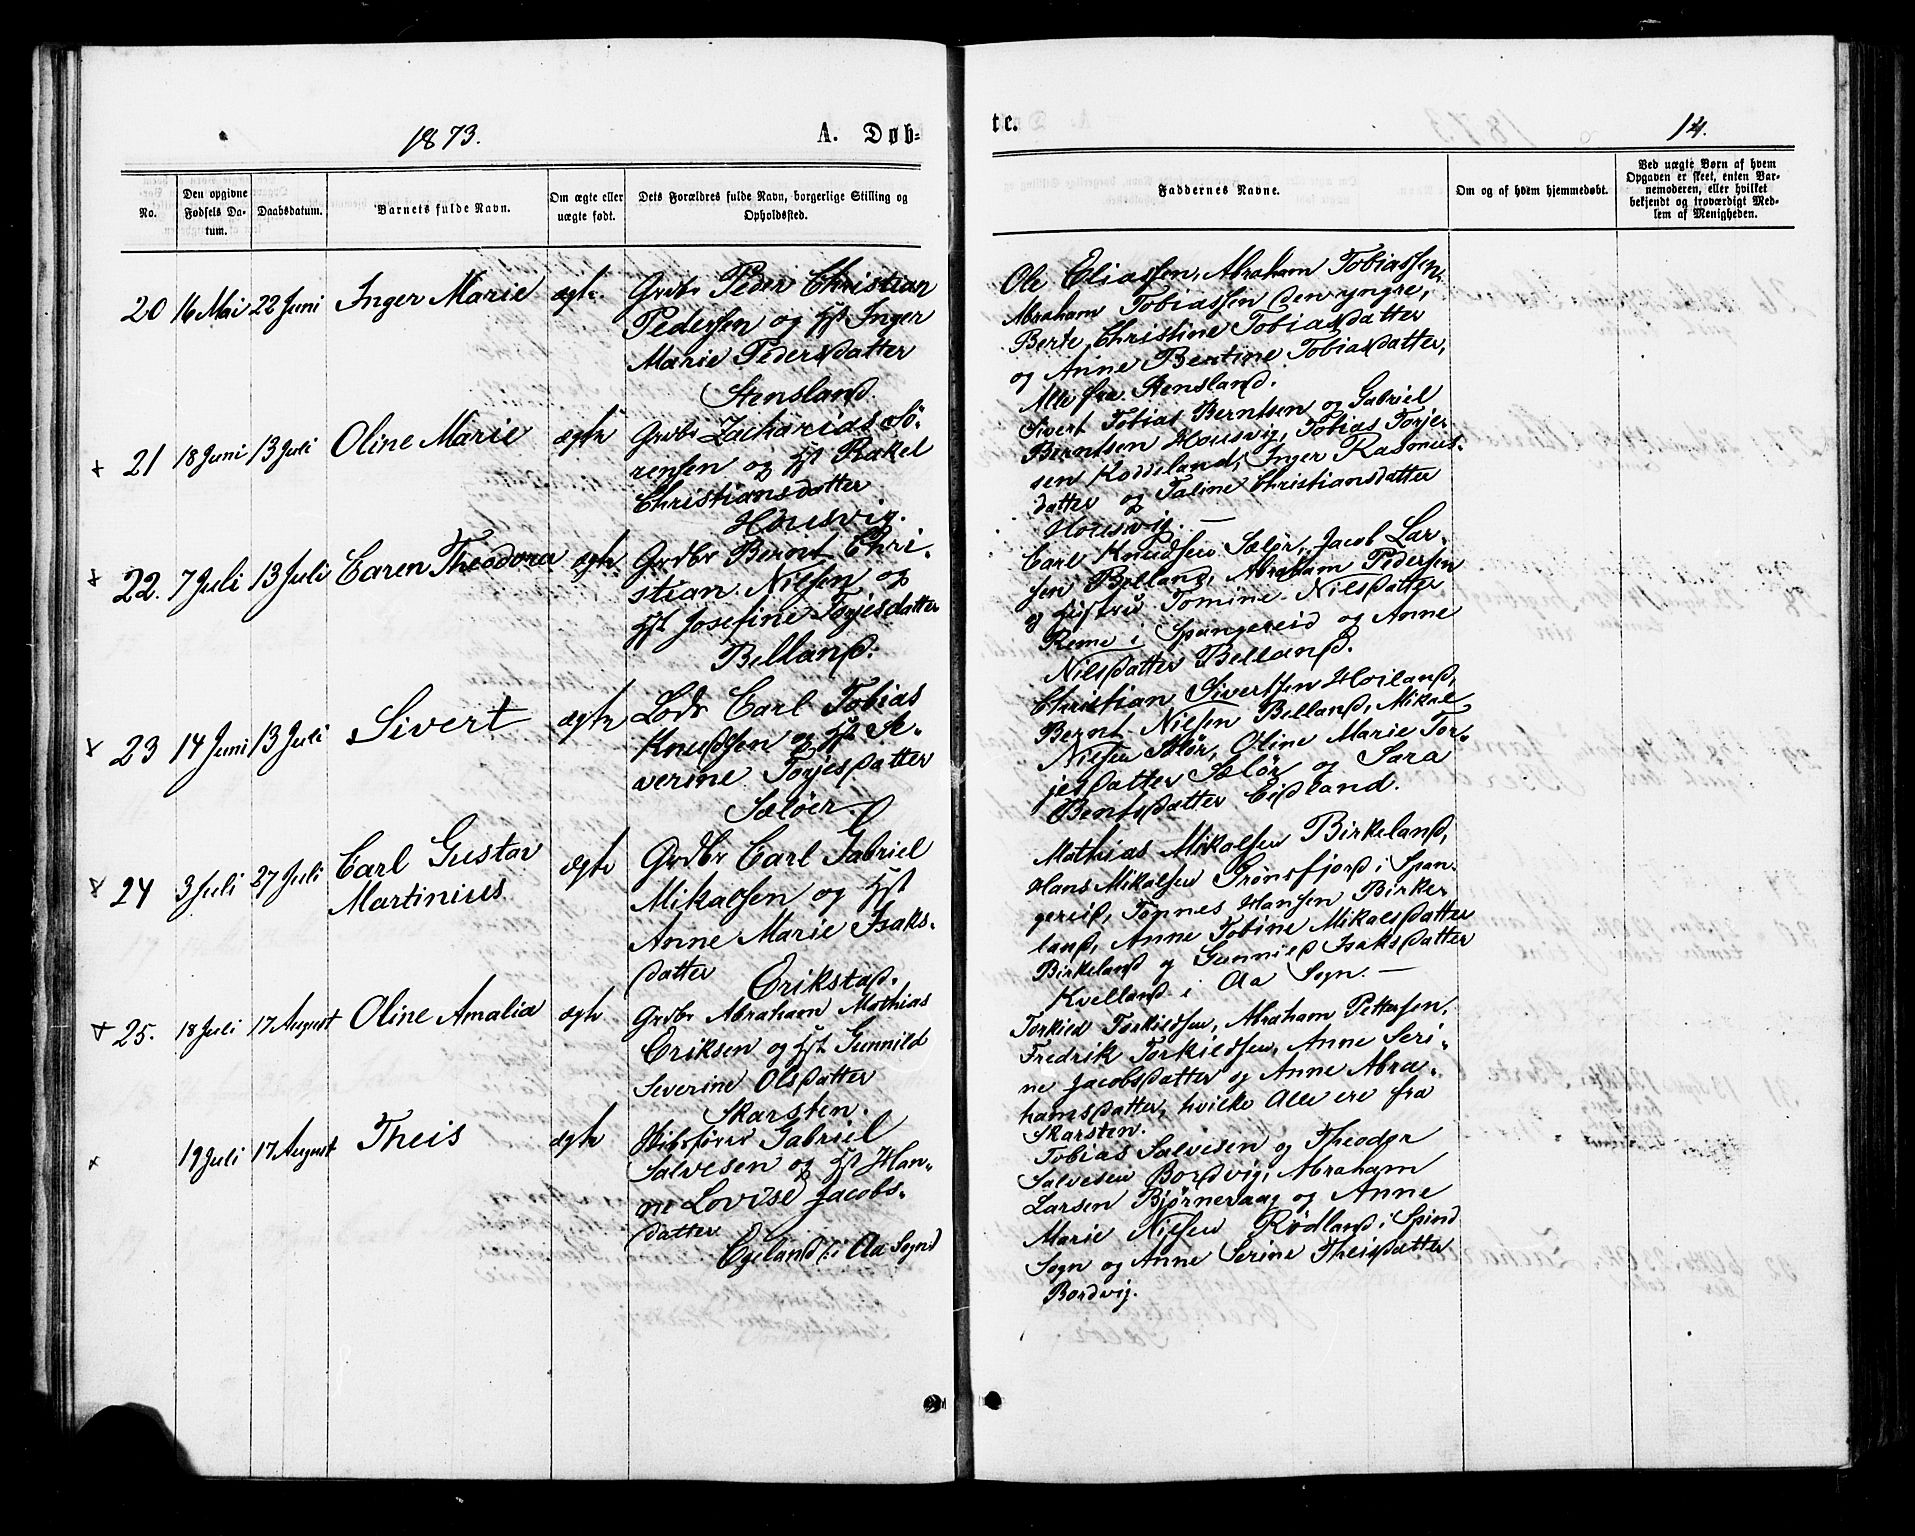 1873.
A. Døb-
No.
Den opgivne
Fødsels Da-
tum.
Daabsdatum.
Barnets fulde Navn.
Om ægte eller
uægte født.
Dets Forældres fulde Navn, borgerlige Stilling og
Opholdssted.
20 16 Mai 22 Juni Inger Marie ægte Grdbr Peder Christian
Pedersen og Hst Inger
Marie Pedersdatter
Stensland.
21 18 Juni 13 Juli Oline Marie ægte Grdbr Zacharias Sö-
rensen og Hst Rakel
Christiansdatter
Housvig.
22. 7 Juli 13 Juli Caren Theodora ægte Grdbr Bernt Chri-
stian Nilsen og
Hst Josefine Torjesdatter
Belland.
23 14 Juni 13 Juli Sivert ægte Lods Carl Tobias
Knudsen og Hst Se-
verine Torjesdatter
Sæløer.
24 3 Juli 27 Juli Carl Gustav
Martinius ægte Grdbr Carl Gabriel
Mikalsen og Hst
Anne Marie Isaks-
datter Erikstad.
25. 18 Juli 17 August Oline Amalia ægte Grdbr Abraham Mathias
Eriksen og Hst Gunnild
Severine Olsdatter
Skarsten.
19 Juli 17 August Theis ægte Skibsfører Gabriel
Salvesen og Hst Han-
ne Lovise Jacobs-
datter
Egeland i Aa Sogn
te.
14.
Faddernes Navne.
Om og af hvem hjemmedøbt.
Ved uægte Børn af hvem
Opgaven er skeet, enten Bar-
nemoderen, eller hvilket
bekjendt og troværdigt Med-
lem af Menigheden.
Ole Eliassen, Abraham Tobiassen
Abraham Tobiassen den yngre,
Berte Christine Tobiasdatter
og Anne Bentine Tobiasdatter,
Alle fra Stensland.
Sivert Tobias Berntsen og Gabriel
Berntsen Housvig, Tobias Torjes
sen Koddeland, Inger Rasmus-
datter og Taline Christiansdatter
Housvig.
Carl Knudsen Sælør, Jacob Lar-
sen Belland, Abraham Pedersen
og Hustru Tomine Nilsdatter
Reme i Spangereid og Anne
Nilsdatter Belland.
Christian Sivertsen Hoiland,
Bernt Nilsen Belland, Mikal
Nilsen Sælør, Oline Marie Tor-
jesdatter Sælör og Sara
Bentsdatter Eidland.
Mathias Mikalsen Birkeland,
Hans Mikalsen Grønsfjord i Span-
gereid, Tønnes Hansen Birke-
land, Anne Tobine Mikalsdatter
Birkeland og Gunnild Isaksdatter
Kvelland i Aa Sogn.
Torkild Torkildsen, Abraham Pettersen,
Fredrik Torkildsen, Anne Seri-
ne Jacobsdatter og Anne Abra-
hamsdatter, hvilke Alle ere fra
Skarsten.
Tobias Salvesen og Theodor
Salvesen Bordvig, Abraham
Larsen Bjørnevaag og Anne
Marie Nilsen Rødland i Spind
Sogn og Anne Serine Theisdatter
Bordvig.